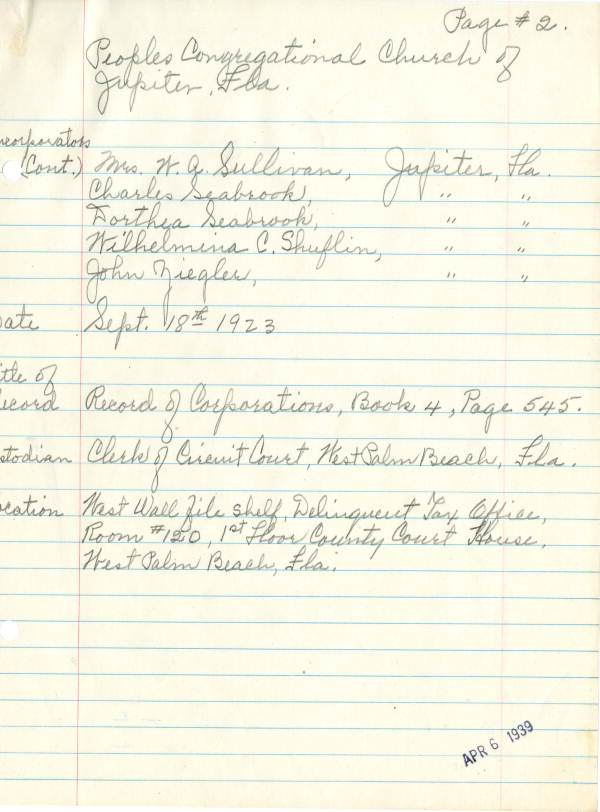 Page #2.
Peoples Congregational Church of
Jupiter, Fla.
ncorporators
(Cont.) Mrs. W. G. Sullivan, Jupiter, Fla.
Charles Seabrook, " "
Dorthea Seabrook, " "
Wilhelmina C. Shuflin, " "
John Ziegler, " "
Date Sept. 18th 1923
itle of
Record Record of Corporations, Book 4, Page 545.
stodian Clerk of Circuit Court, West Palm Beach, Fla.
ocation West Wall file shelf, Delinquent Tax Office,
Room #120, 1st Floor County Court House,
West Palm Beach, Fla.
APR 6 1939